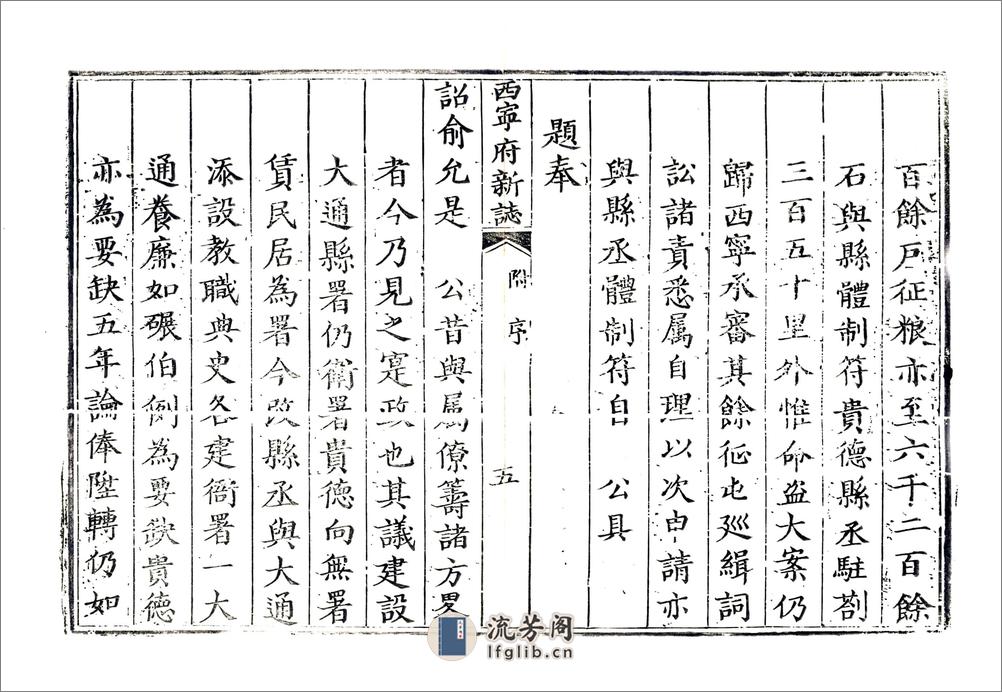 百餘戸征粮亦至六千二百餘
石與縣體制符貴德縣丞駐劄
三百五十里外惟命盗大案仍
歸西寧承審其餘征屯廵緝詞
訟諸責悉属自理以次申請亦
與縣丞體制符自 公具
題奉
西寧府新誌 附序 五
詔俞允是 公昔與属僚籌諸方畧
者今乃見之寔政也其議建設
大通縣署仍衛署貴德向無署
賃民居為署今改縣丞與大通
添設教職典史各建衙署一大
通養廉如碾伯例為要缺貴德
亦為要缺五年論俸陞轉仍如
流芳阁
lfglib.cn